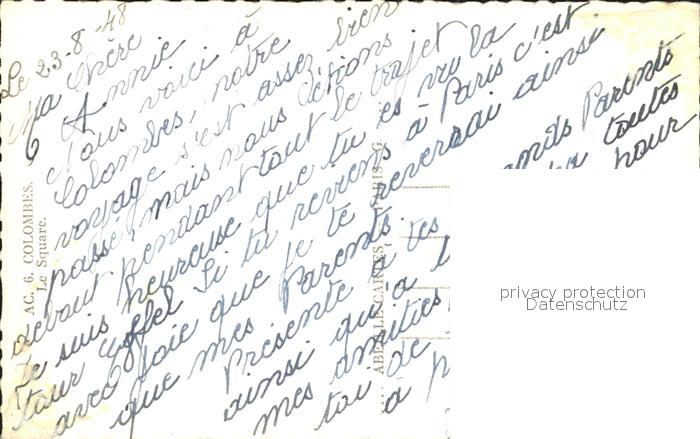 Le 23-8-48
Ma Chère
Annie
Nous voici à
Colombes, notre
voyage s'est assez bien
passé, mais nous étions
debout pendant tout le trajet
Je suis heureuse que tu es vu la
tour Eyffel Si tu reviens à Paris c'est
avec joie que je te reverrai ainsi
que mes Parents.
Présente à tes
ainsi qu'à
mes amitiés
toi de
à
Parents
toutes
pour
AC. 6. COLOMBES.
Le Square.
ABEILLE-CARTES
privacy protection
Datenschutz